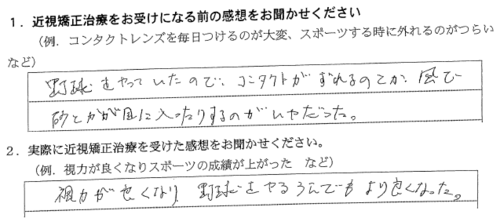 1. 近視矯正治療をお受けになる前の感想をお聞かせください
(例. コンタクトレンズを毎日つけるのが大変、スポーツする時に外れるのがつらい
など)
野球をやっていたので、コンタクトがずれるのとか、風で
砂とかが目に入ったりするのがいやだった。
2. 実際に近視矯正治療を受けた感想をお聞かせください。
(例. 視力が良くなりスポーツの成績が上がった など)
視力が良くなり、野球をやるうえでもより良くなった。